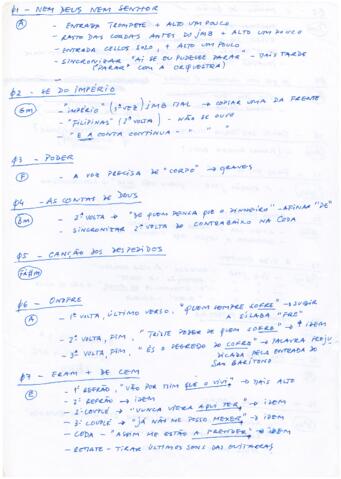 #1 - NEM DEUS NEM SENHOR
(A) - ENTRADA TROMPETE + ALTO UM POUCO
- RASTO DAS CORDAS ANTES DO JMB + ALTO UM POUCO
- ENTRADA CELLOS SOLO, + ALTO UM POUCO
- SINCRONIZAR "AI SE EU PUDESSE PARAR" - MAIS TARDE
("PARAR" COM A ORQUESTRA)
#2 - SÉ DO IMPÉRIO
(Gm) - "IMPÉRIO" (3ª VEZ) JMB MAL → COPIAR UMA DA FRENTE
- "FILIPINAS" (2ª VOLTA) - NÃO SE OUVE
- "E A CONTA CONTINUA - " " "
#3 - PODER
(F) - A VOZ PRECISA DE "CORPO" → GRAVES
#4 - AS CONTAS DE DEUS
- 2ª VOLTA → "DE QUEM PENSA QUE O DINHEIRO" - AFINAR "DE"
- SINCRONIZAR 2ª VOLTA DO CONTRABAIXO NA CODA
#5 - CANÇÃO DOS DESPEDIDOS
(F#m)
#6 - ONZPRE
(A) - 1ª VOLTA, ÚLTIMO VERSO, "QUEM SEMPRE SOFRE" → SUBIR
A SÍLABA "FRE"
- 2ª VOLTA, FIM, "TRISTE PODER DE QUEM SOFRE" → IDEM
- 3ª VOLTA, FIM, "ÉS O SEGREDO DO COFRE" → PALAVRA PREJU
DICADA PELA ENTRADA DO
SAX BARÍTONO
#7 - ERAM + DE CEM
- 1º REFRÃO, "VÃO POR MIM QUE O VIVI" → MAIS ALTO
- 2º REFRÃO → IDEM
- 2º COUPLÉ → "NUNCA VIERA AQUI TER" → IDEM
- 3º COUPLÉ → "JÁ NÃO ME POSSO MEXER" → IDEM
- CODA - "ASSIM ME ESTÃO A PRENDER" → IDEM
- REMATE - TIRAR ÚLTIMOS SONS DAS GUITARRAS